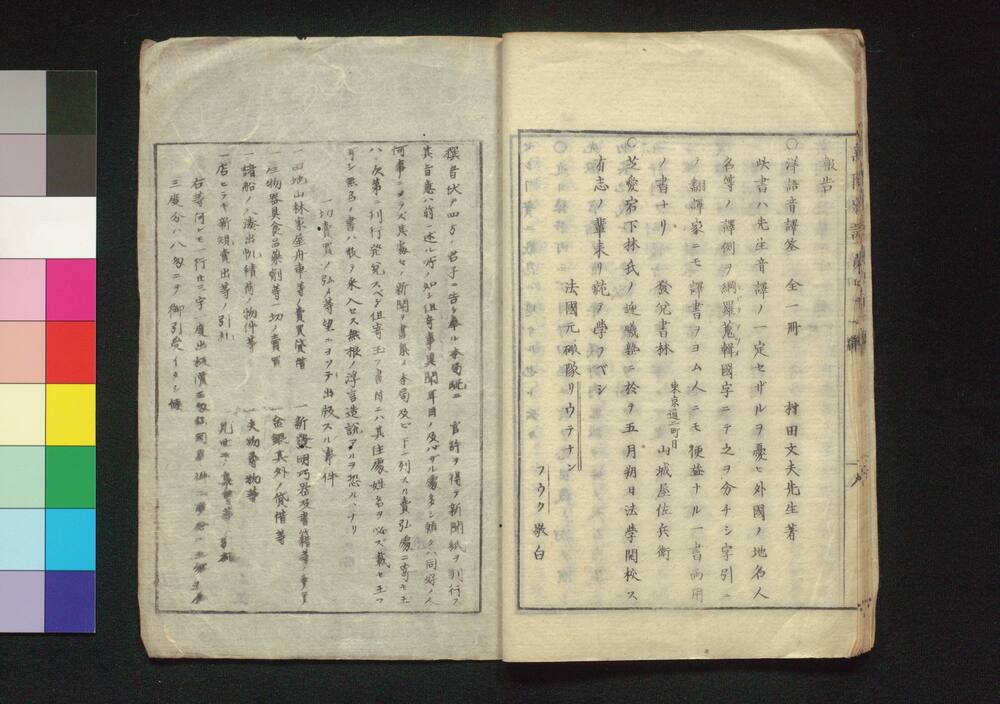 報告
〇洋語音譯筌 全一冊 村田文夫先生著
此書ハ先生音譯ノ一定セザルヲ憂ヒ外國ノ地名人
名等ノ譯例ヲ網羅蒐輯國字ニテ之ヲ分チシ字引ニ
ノ翻譯家ニモ譯書ヲヨム人ニモ便益ナル一書両用
ノ書ナリ 發兌書林 東京通二町目 山城屋佐兵衛
〇芝愛宕下林氏ノ邸 ニ於ヲ五月朔日法學開校ス
有志ノ輩来リ 學フベシ
法國元 隊リウテナン
フウク敬白
撰者伏テ四方ノ君子ニ告シ奉ル本局 ニ 官許ヲ得テ新聞紙ヲ刊行ス
其旨意ハ前ニ述ル所ノ如シ但奇事異聞耳目ノ及バザル處多シ ハ同好ノ人
何事ニヨラズ其 セシ新聞ヲ書集メ本局及ヒ下ニ列スル賣弘處ニ寄セ玉
ハヽ次第ニ刊行発兌スベシ但寄玉フ書付ニハ其住處姓名ヲ必ズ載セ玉フ
可シ無名ノ書ハ敢テ采入セス無根ノ浮言造説アルヲ恐ルヽナリ
一切賣買ノ弘メ等望ニヨツテ出版スル事件
一田地山林家屋舟車等ノ賣買貸借 一新發明巧器及書籍等ノ
一 物器具食品藥劑等一切ノ賣買 一金銀其外ノ貸借等
一諸船ノ入湊出帆積荷ノ物件等 一失物尋物等
一店ヒラキ新規賣出等ノ引札 一見世
右等何レモ一行廿三字一度出板價
三度分ハ八匁ニテ御引受イタシ候